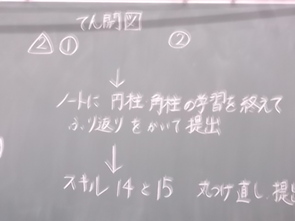 てん開図
② ① ②
↓
ノートに 円柱 角柱の学習を終えて
ふり返りをかいて提出
↓
スキル 14と15 丸つけ 直し 提出